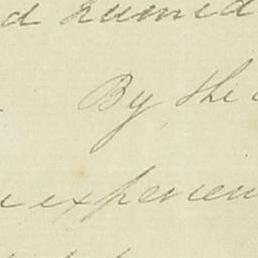 d humid
By the
experien